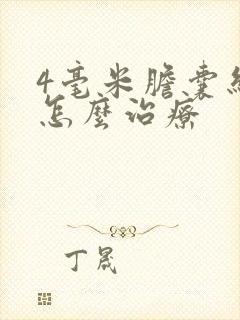 4毫米膽囊
怎麼治療
丁晟